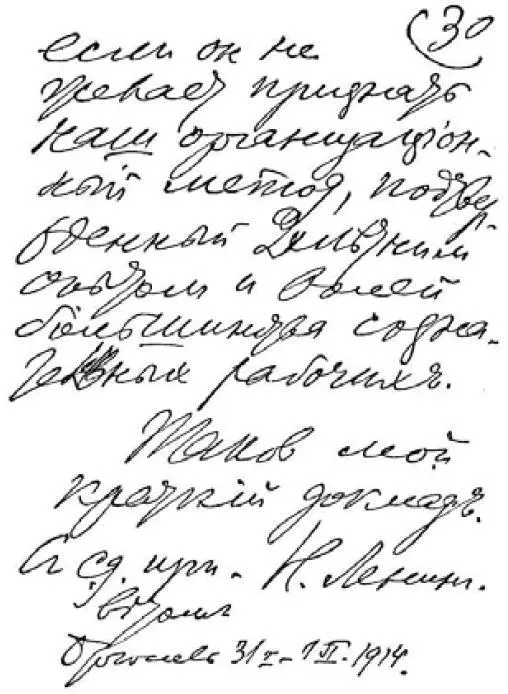 30
если он не
желает признать
наш организаціон-
ный метод, подтвер-
жденный 2хлѣтним
опытом и волей
большинства созна-
тельных рабочихъ.
Таков мой
краткий докладъ.
С с.д. при-
Н. Ленин.
вѣтом
Брюссель 31 I - 1 II. 1914.